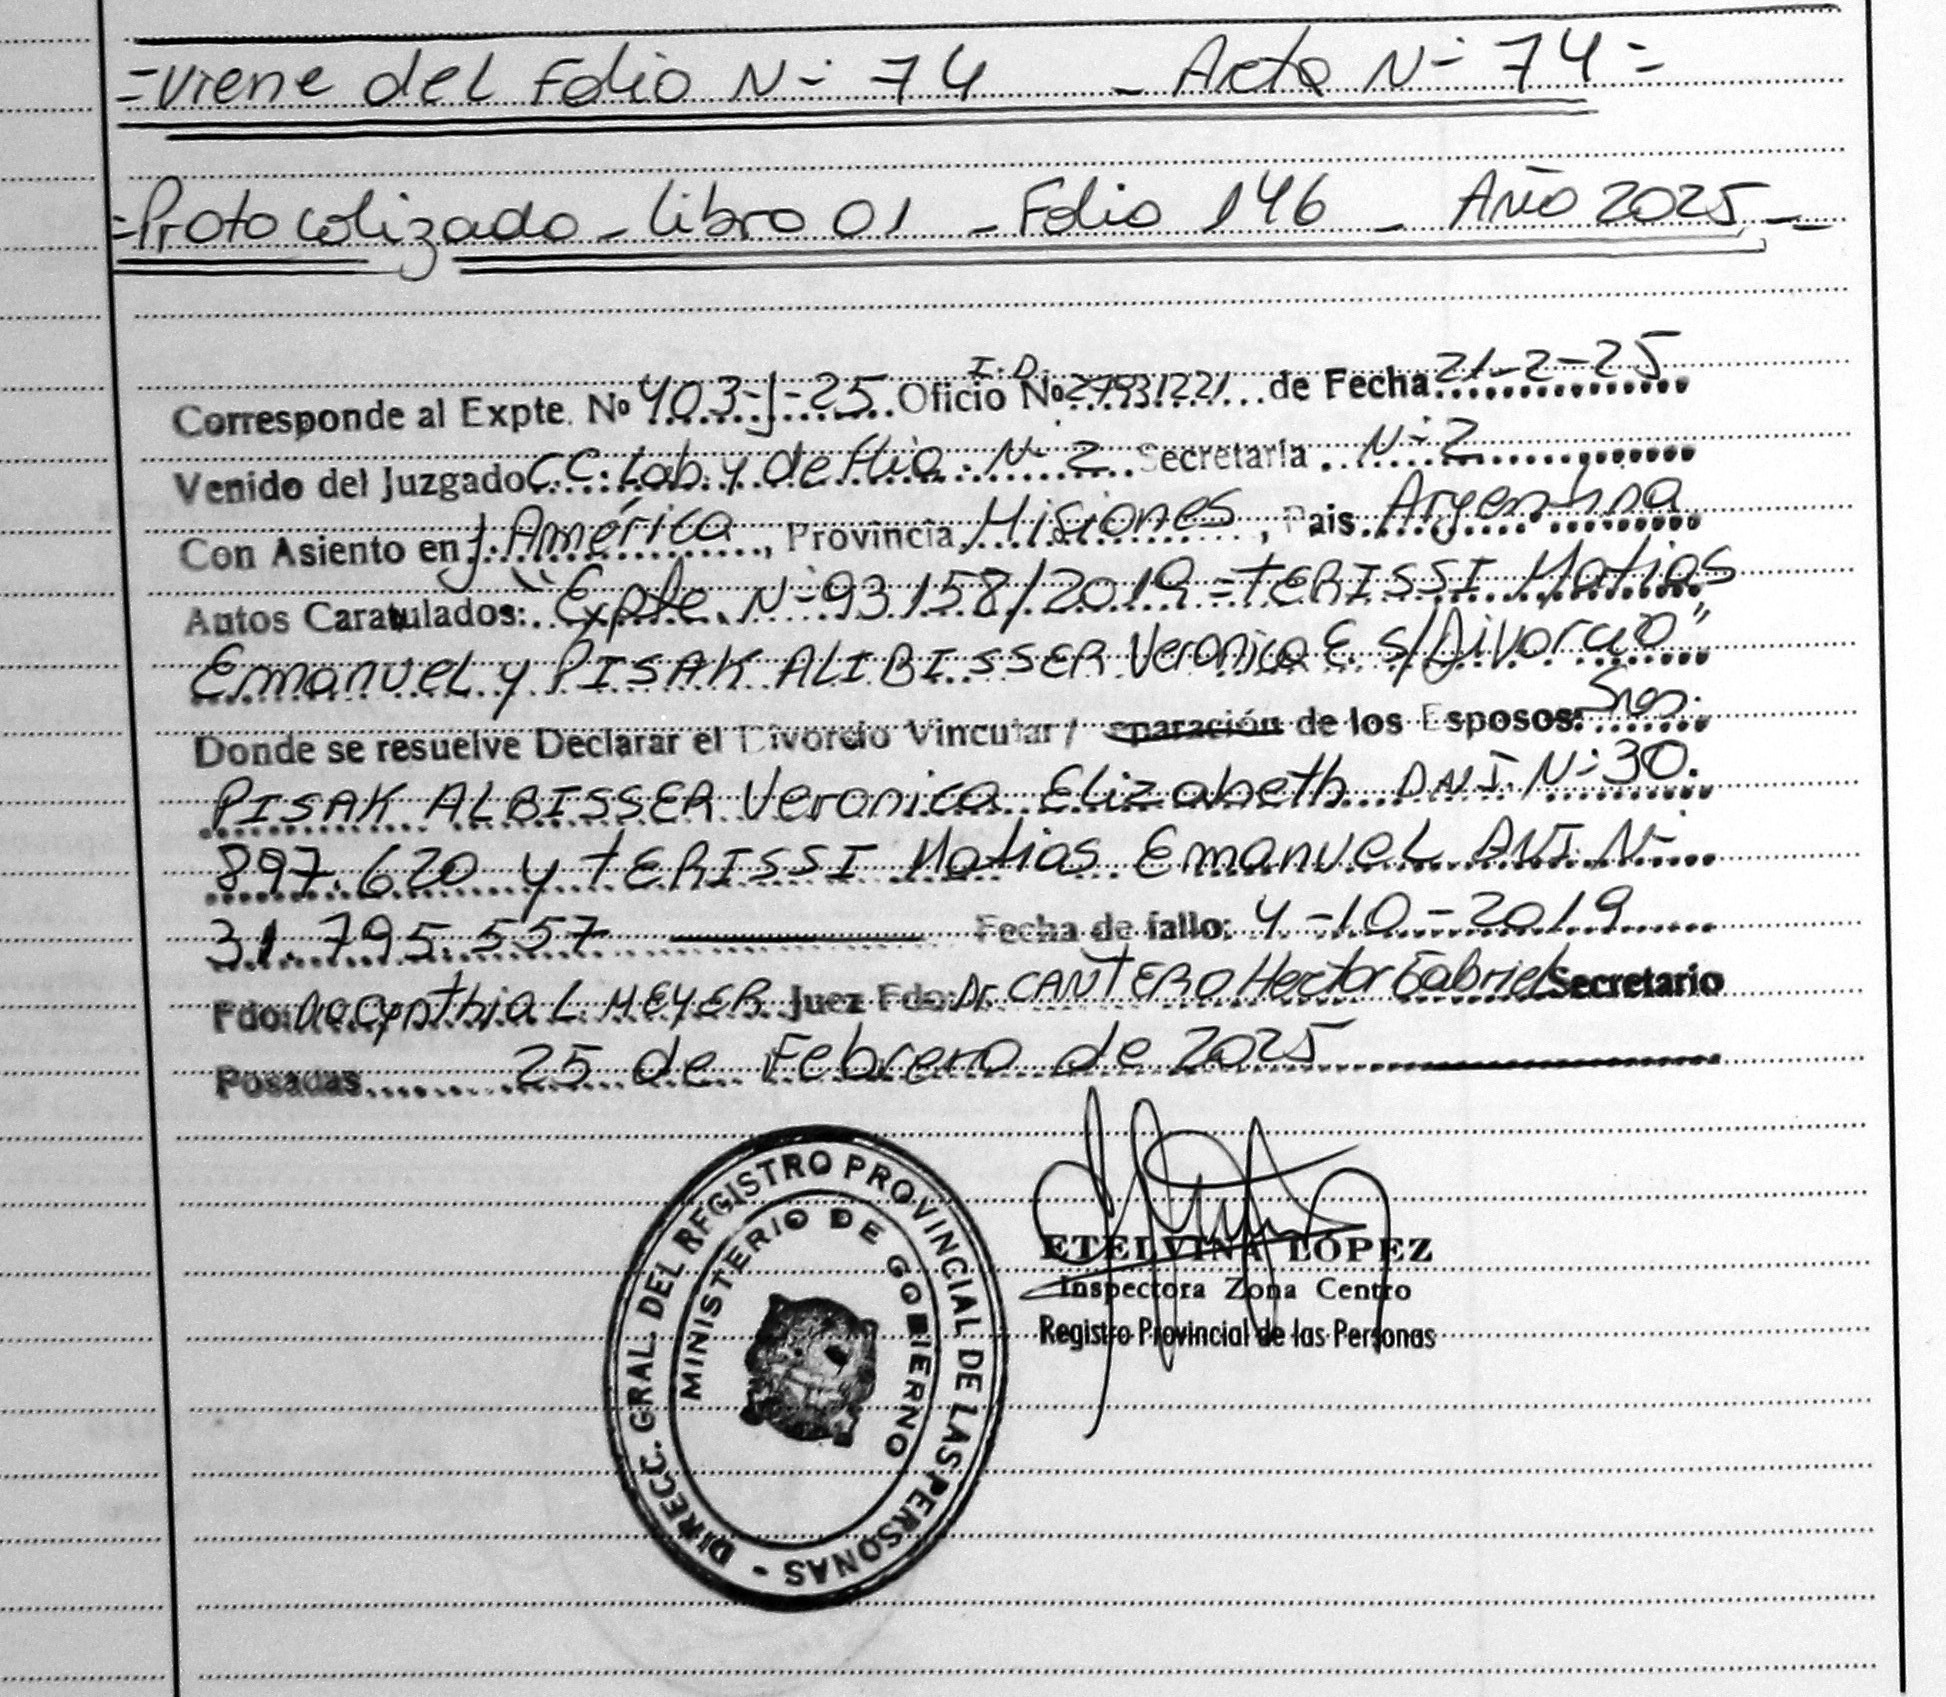 =Viene del Folio N- 74 - Acta N- 74=
=Protocolizado - Libro 01 - Folio 146 - Año 2025 -=
I.D.
Corresponde al Expte. Nº 403-J-25 Oficio Nº 27931221 de Fecha 21-2-25
Venido del Juzgado C.C. Lab. y de Flia. N- 2 Secretaría N- 2
Con Asiento en J. América, Provincia Misiones, Pais Argentina
Autos Caratulados: "Expte. N- 93158/2019 = TERISSI Matias
Emanuel y PISAK ALIBISSER Veronica E. s/Divorcio"
Donde se resuelve Declarar el Divorcio Vincular / eparación de los Esposos: Sres.
PISAK ALBISSER Veronica Elizabeth DNI. N- 30.
897.620 y TERISSI Matias Emanuel DNI. N-
31.795.557 Fecha de fallo: 4-10-2019
Fdo: Dra Cynthia L. MEYER Juez Fdo: Dr. CANTERO Hector Gabriel Secretario
Posadas 25 de Febrero de 2025
DIRECC. GRAL. DEL REGISTRO PROVINCIAL DE LAS PERSONAS -
MINISTERIO DE GOBIERNO
ETELVINA LOPEZ
Inspectora Zona Centro
Registro Provincial de las Personas